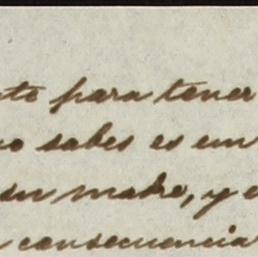 para tener
sabes es un
su madre, y
consecuencia